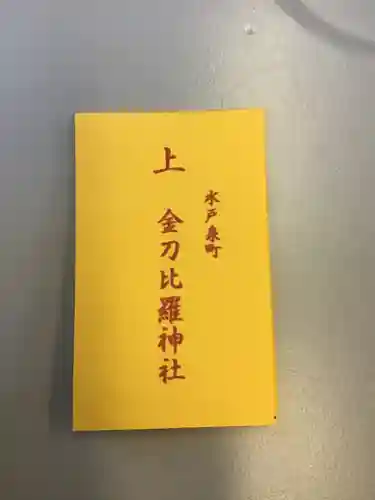 水戸泉町
上
金刀比羅神社